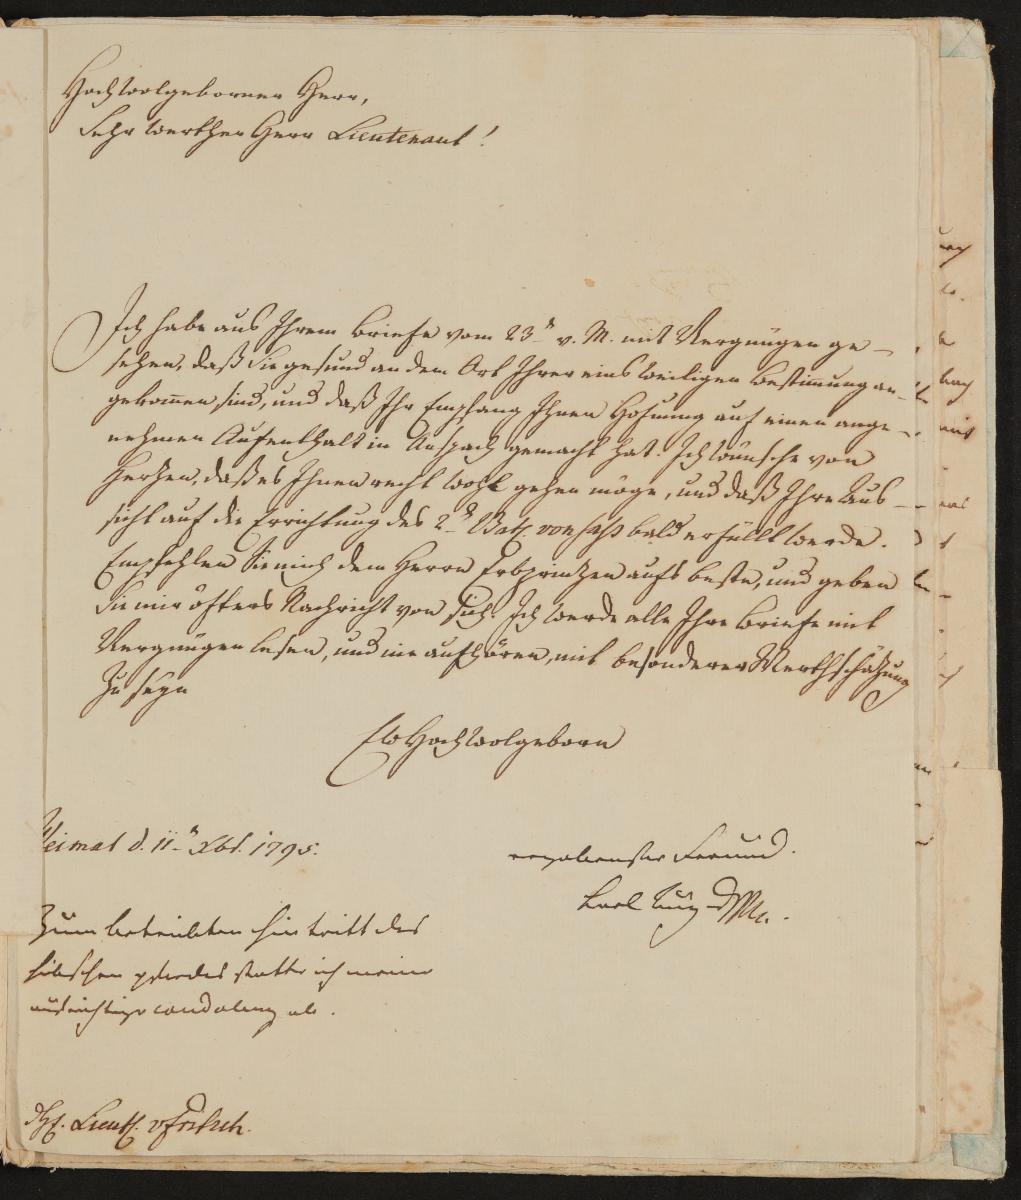 Hochwolgeborner Herr,
Sehr werther Herr Lieutenant!
Ich habe aus Ihrem Briefe vom 23n v. M. mit Vergnügen ge-
sehen, daß Sie gesund an dem Ort Ihrer einsweiligen Bestimung an-
gekomen sind, und daß Ihr Empfang Ihnen Hofnung auf einen ange-
nehmen Aufenthalt in Anspach gemacht hat. Ich wünsche von
Herzen, daß es Ihnen recht wohl gehen möge, und daß Ihre Aus-
sicht auf die Errichtung des 2n Bat. von Saß bald erfüllt werde.
Empfehlen Sie mich dem Herrn Erbprintzen aufs beste, und geben
Sie mir öfters Nachricht von sich. Ich werde alle Ihre Briefe mit
Vergnügen lesen, und nie aufhören, mit besonderer Werthschätzung
zu seyn
Ew Hochwolgeborn
Weimar d. 11n Xbr. 1795.
ergebenster Freund.
Carl Aug HzW.
Zum betrübten hintritt des
hübschen pferdes statte ich meine
aufrichtige condolenz ab.
Lieut. v Fritsch.